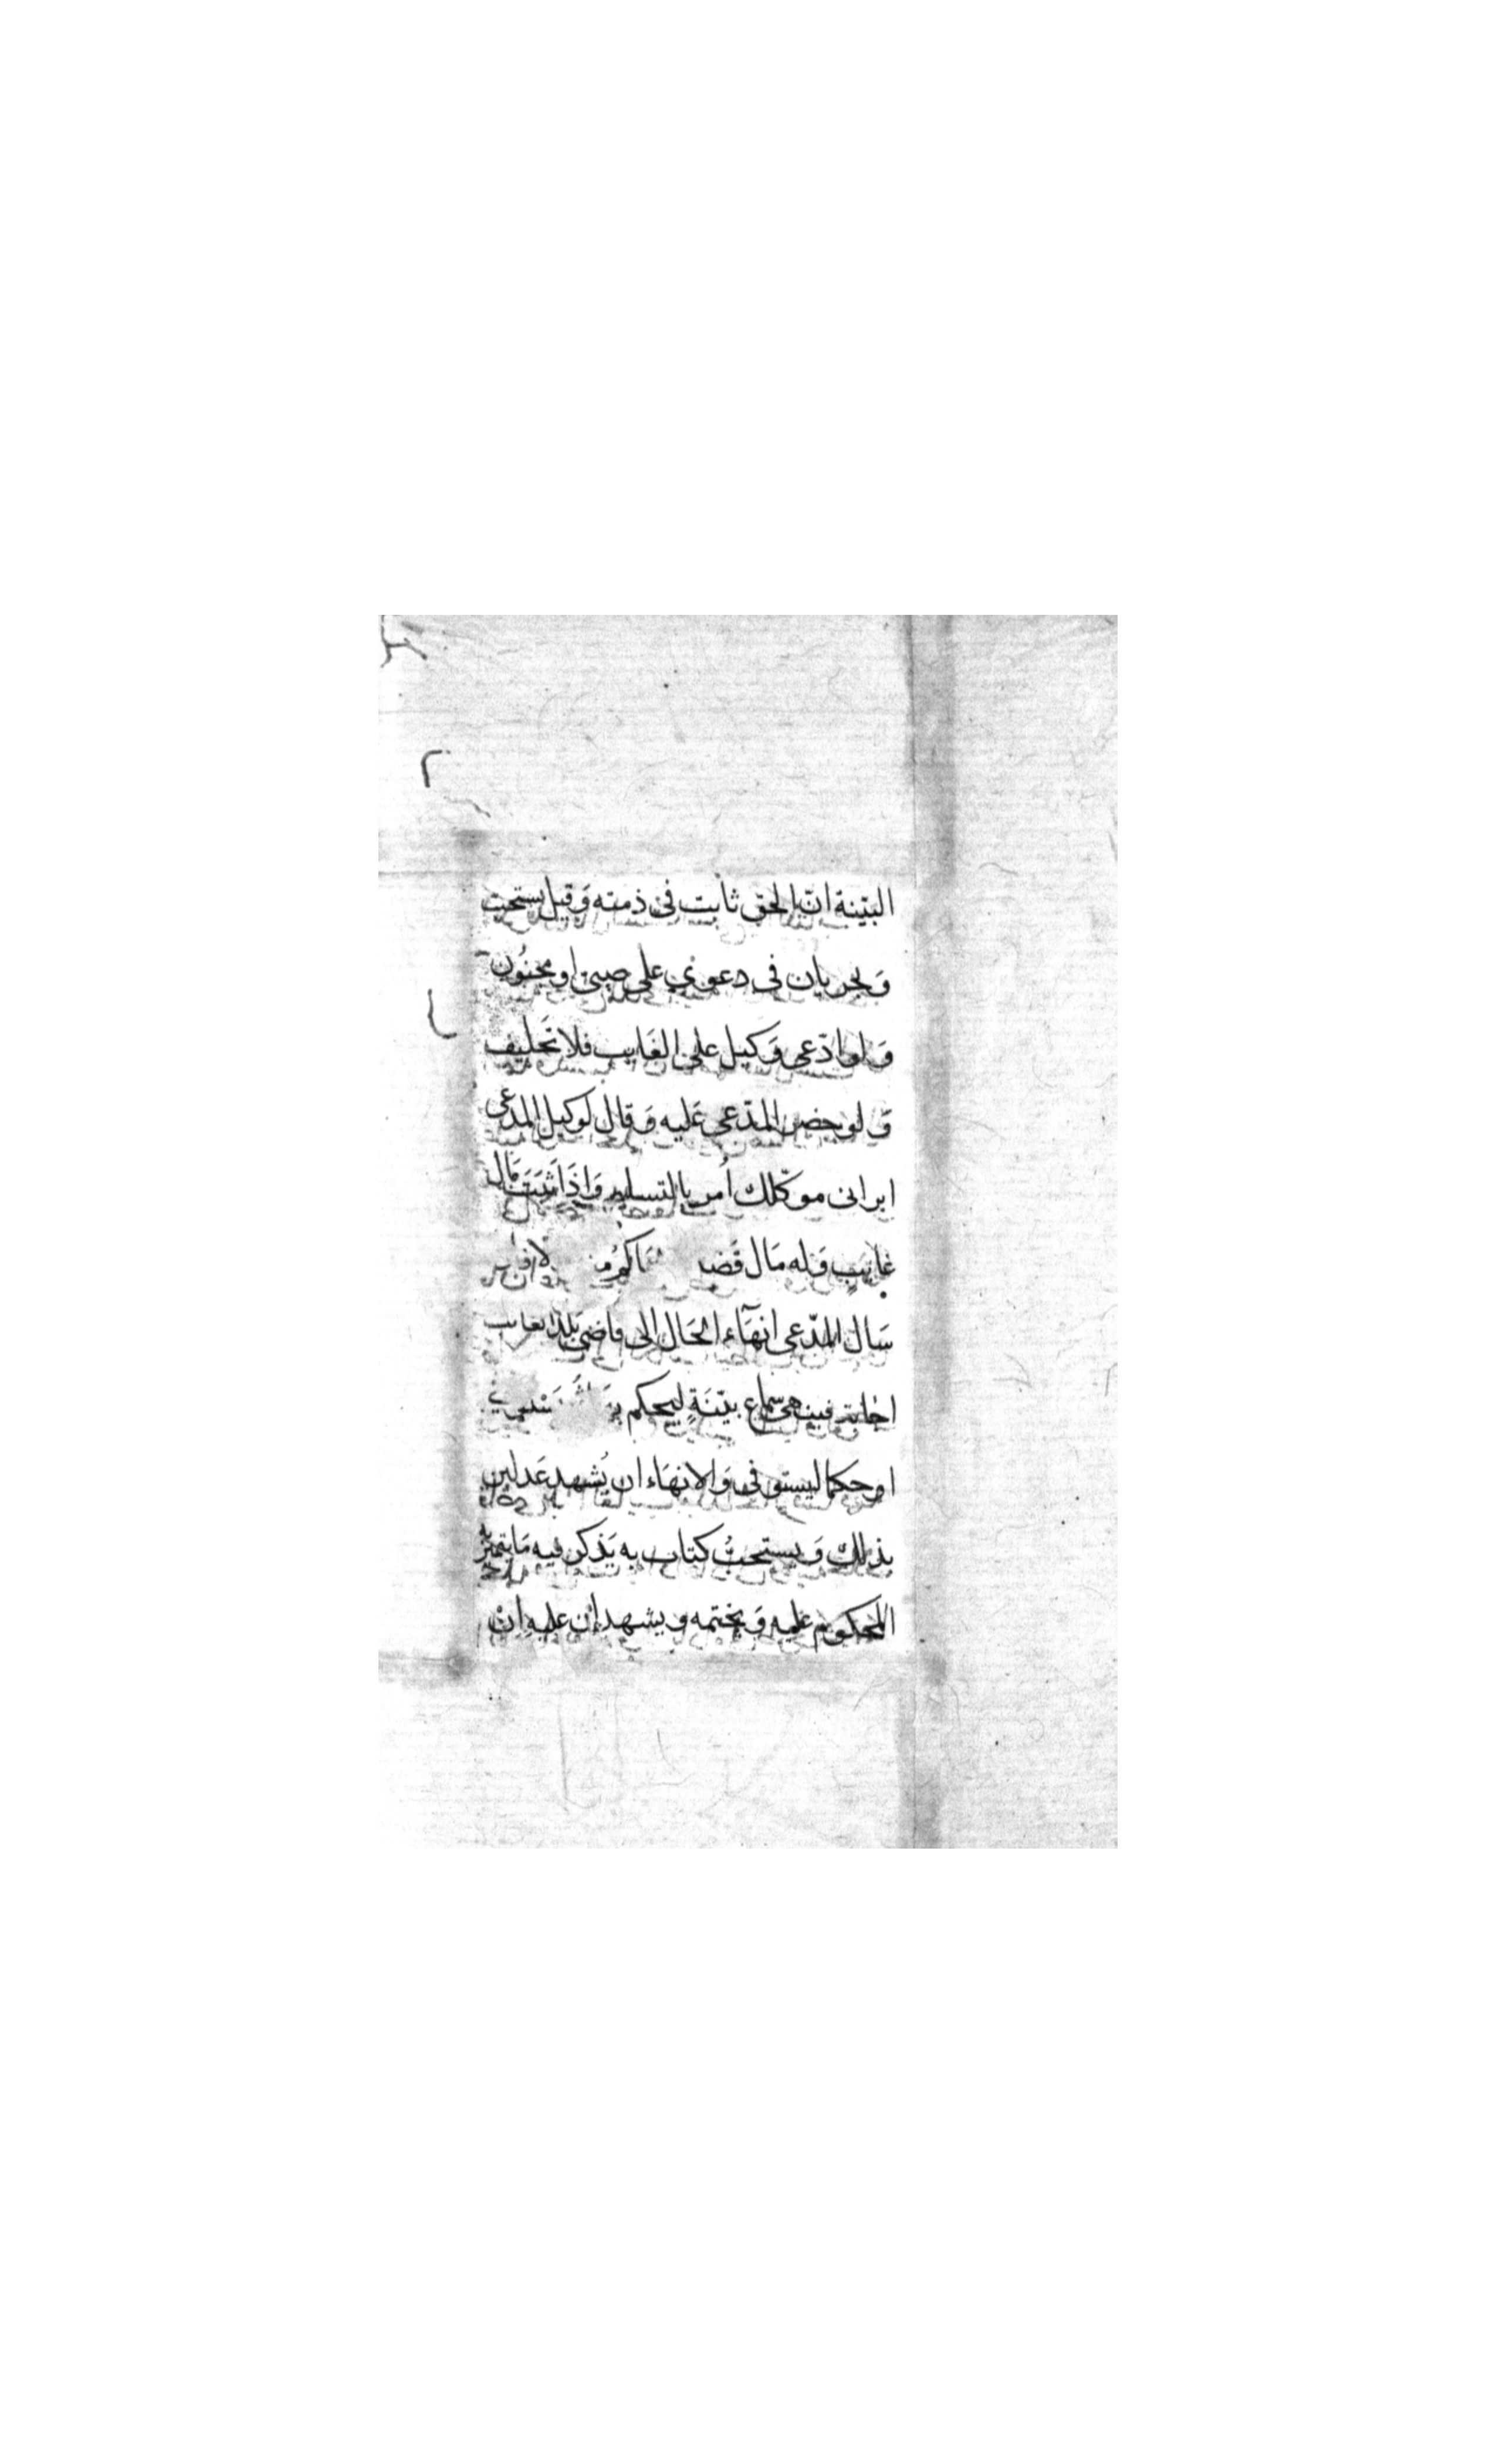 البيّنة انّ الحق ثابت فى ذمته وَقيل يستحبّ
وَيجريان فى دعوي على صبىّ او مجنُون
وَلو ادّعى وَكيل على الغَايب فلا تَحليف
وَلو حضر المدّعى عَليه وَقال لوكيل المدعى
ابرانى موكّلك اُمر بالتسليم وَاِذَا ثَبَتَ مَال
غايبٍ وَله مَال قَضـ
سَال المدّعى انهَآء الحَال الى قاضى بَلد الغايب
اجابه فينهى سماع بيّنَةٍ ليحكم
او حكما ليستوفى وَالانهَاء ان يُشهد عَدلين
بذلك وَيستحبُّ كتاب به يَذكر فيه مَا يتميّز به
المحكوم عليه وَيختمه ويشهدان عليه اِنْ